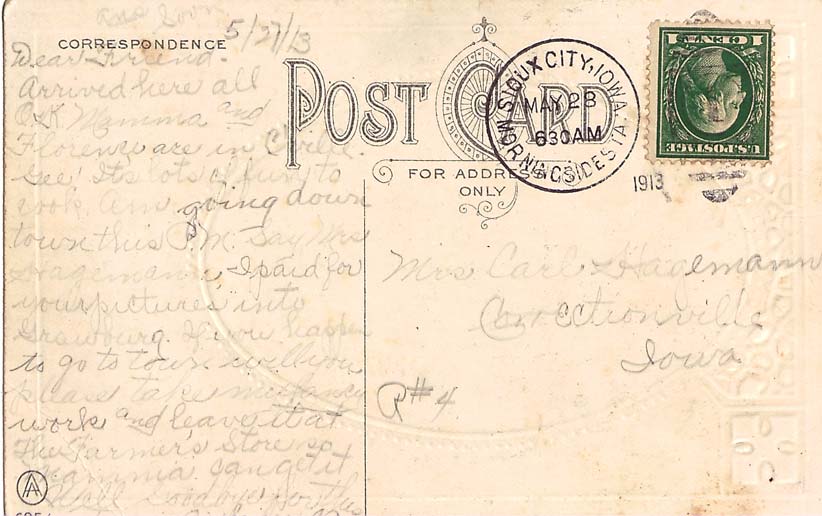 Ans Soon
5/27/13
CORRESPONDENCE
Dear Friend.
Arrived here all
O.K. Mamma and
Florence are in C'ville.
Gee! Its lots of fun to
cook. Am going down
town this P.M. Say Mrs
Hagemann, I paid for
your pictures into
If you happen
to go to town will you
please take my fancy
work and leave it at
The Farmer's Store so
Mamma can get it
Well Goodbye for this
POST CARD
FOR ADDRESS
ONLY
SIOUX CITY, IOWA.
MORNINGSIDE STA.
MAY 28
630AM
1913
U.S.POSTAGE
1 CENT 1
Mrs Carl Hagemann
Correctionville
Iowa
R#4
AA